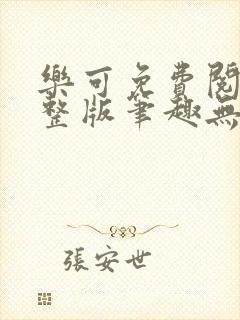 樂可免費閱
整版筆趣無
張安世